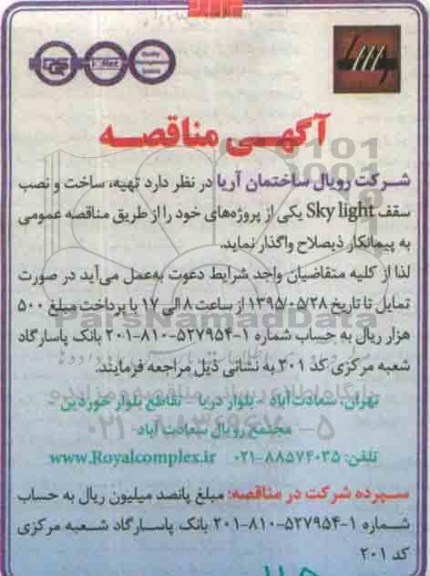 آگهی مناقصه
شرکت رویال ساختمان آریا در نظر دارد تهیه، ساخت و نصب
سقف Sky light یکی از پروژه‌های خود را از طریق مناقصه عمومی
به پیمانکار ذیصلاح واگذار نماید.
لذا از کلیه متقاضیان واجد شرایط دعوت به‌عمل می‌آید در صورت
تمایل تا تاریخ ۱۳۹۵/۰۵/۲۸ از ساعت ۸ الی ۱۷ با پرداخت مبلغ ۵۰۰
هزار ریال به حساب شماره ۱-۵۲۷۹۵۴-۸۱۰-۲۰۱ بانک پاسارگاد
شعبه مرکزی کد ۲۰۱ به نشانی ذیل مراجعه فرمایند.
تهران، سعادت آباد - بلوار دریا - تقاطع بلوار خوردین -
مجتمع رویال سعادت آباد
تلفن: ۸۸۵۷۴۰۳۵-۰۲۱ www.Royalcomplex.ir
سپرده شرکت در مناقصه: مبلغ پانصد میلیون ریال به حساب
شماره ۱-۵۲۷۹۵۴-۸۱۰-۲۰۱ بانک پاسارگاد شعبه مرکزی
کد ۲۰۱
ParsNamadData